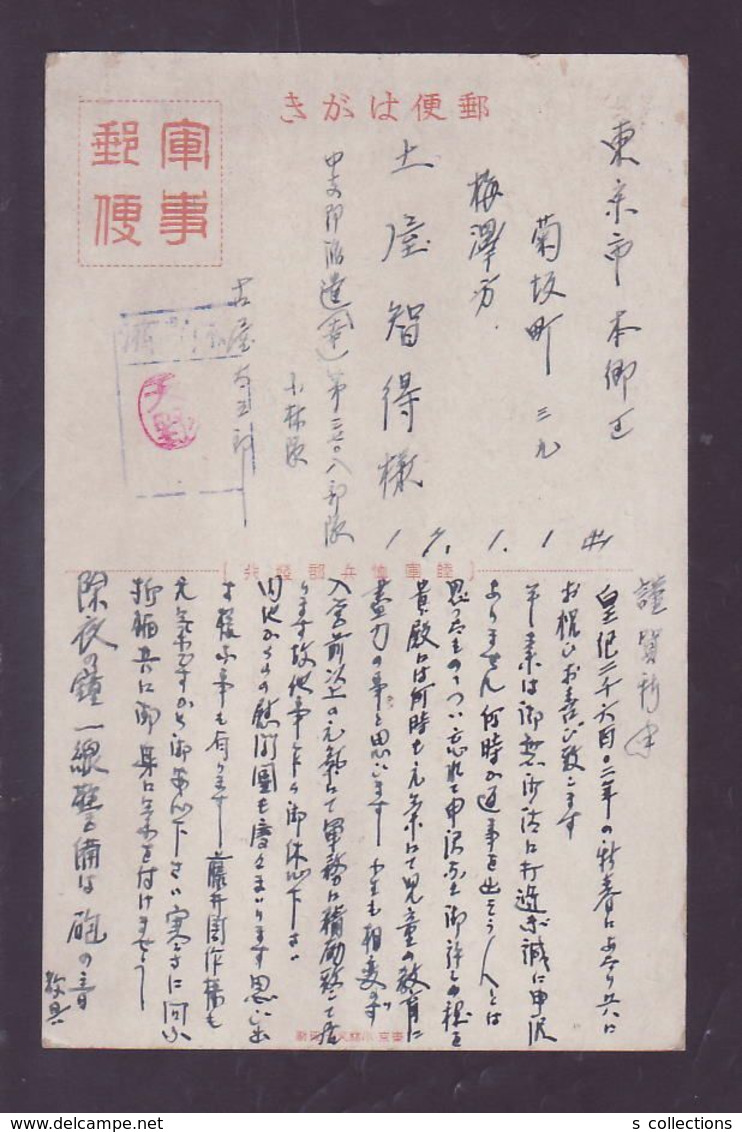 郵便はがき
軍事
郵便
東京市本郷区
菊坂町三九
梅澤方
土屋智得様
中支那派遣
第二七〇八部隊
小林隊
検閲済
17.1.1
陸軍恤兵部發行
謹賀新年
皇紀二千六百〇二年の新春にあたり共に
お祝ひお喜び致します
平素は御無沙汰に打過ぎ誠に申訳
ありません何時か返事を出そう
思つついつい忘れて申訳なし御許しの程を
貴殿には何時も元気にて児童の教育に
盡力の事と思います 小生も相変らず
入営前以上の元気にて軍務に精励致して居
ります故他事乍ら御休心下さい
内地からの慰問團も度々まいります思い出
す様な事も有ります 藤井 様も
元気ですから御安心下さい 寒さに向ふ
折柄共に御身に気を付けませう
除夜の鐘一線警備は砲の音
敬具
s collections